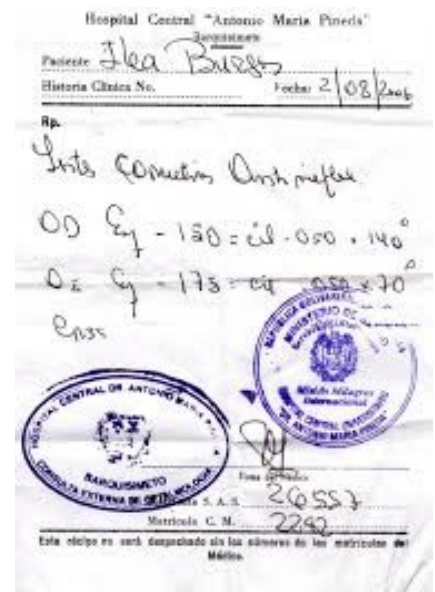 Hospital Central "Antonio Maria Pineda"
Barquisimeto
Paciente Ilea Burgos
Historia Clínica No. Fecha: 2/08/2006
Rp.
Lentes Correctivos Antireflex
OD Esf - 150 = cil - 050 x 140°
OI Esf - 175 = cil - 050 x 70°
REPUBLICA BOLIVARIANA
MINISTERIO DE
Misión Milagro
Internacional
HOSPITAL CENTRAL UNIVERSITARIO
"DR. ANTONIO MARIA PINEDA"
HOSPITAL CENTRAL DR ANTONIO MARIA PINEDA
BARQUISIMETO
CONSULTA EXTERNA DE OFTALMOLOGIA
Firma del Médico
S. A. S. 26557
Matrícula C. M. 2292
Este récipe no será despachado sin los números de las matrículas del
Médico.